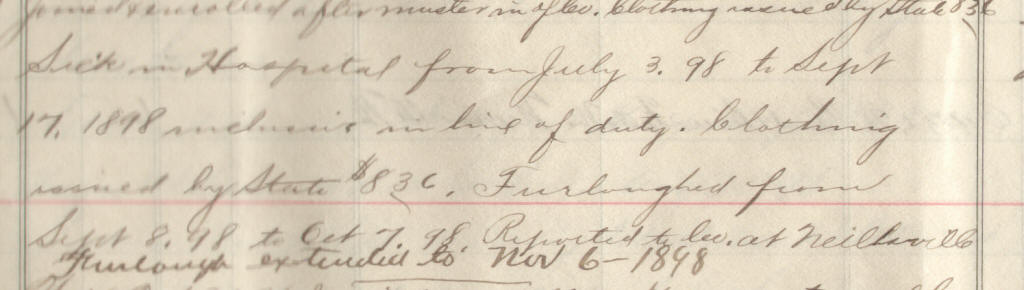 Joined & enrolled after muster in of Co. Clothing issued by State 8 36
Sick in Hospital from July 3. 98 to Sept
17. 1898 inclusive in line of duty. Clothing
issued by State $8 36. Furloughed from
Sept 8. 98 to Oct 7. 98. Reported to Co. at Neillsville
Furlough extended to Nov 6 - 1898